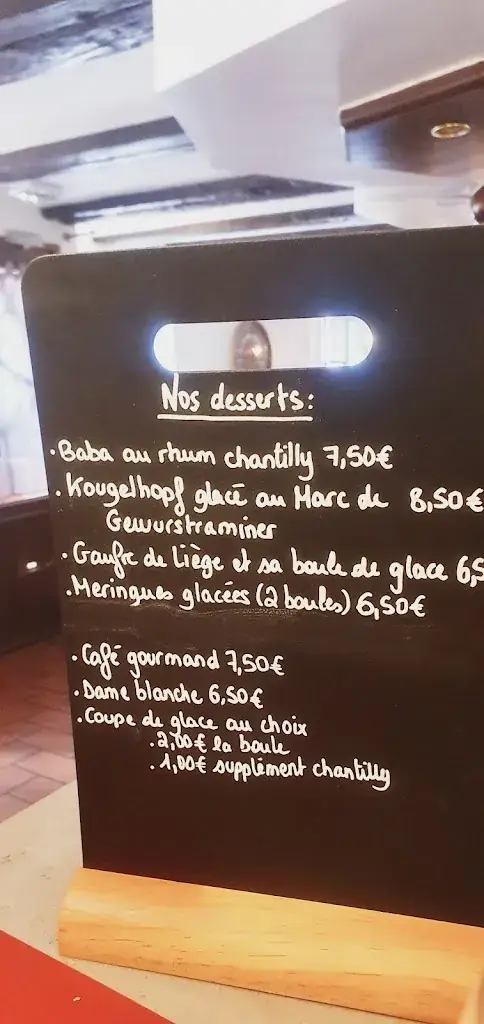 Nos desserts:
· Baba au rhum chantilly 7,50€
· Kougelhopf glacé au Marc de 8,50€
Gewurstraminer
· Gaufre de Liège et sa boule de glace 6,5
· Meringues glacées (2 boules) 6,50€
· Café gourmand 7,50€
· Dame blanche 6,50€
· Coupe de glace au choix
· 2,00€ la boule
· 1,00€ supplément chantilly